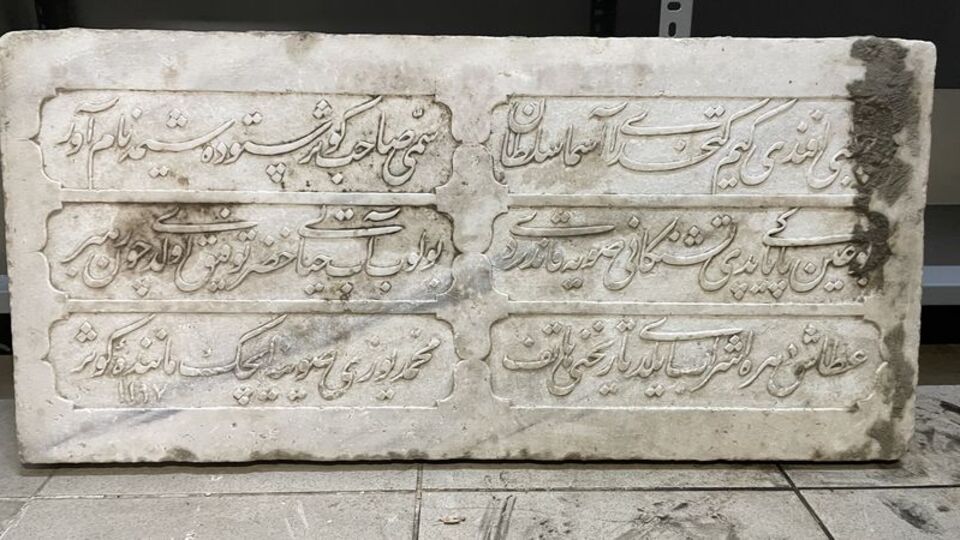 چلبی افندی کیم کتخدای اسما سلطان
سمی صاحب کوثر ستوده شیمه نام آور
بو عین پاکی یاپدی تشنکانی صویه قاندردی
بولوب آب حیاتی خضر توفیق اولدی چون رهبر
عطاشه تاریخنی هاتف
محمد یوزی صوینه ایچک ماننده کوثر
۱۱۹۷